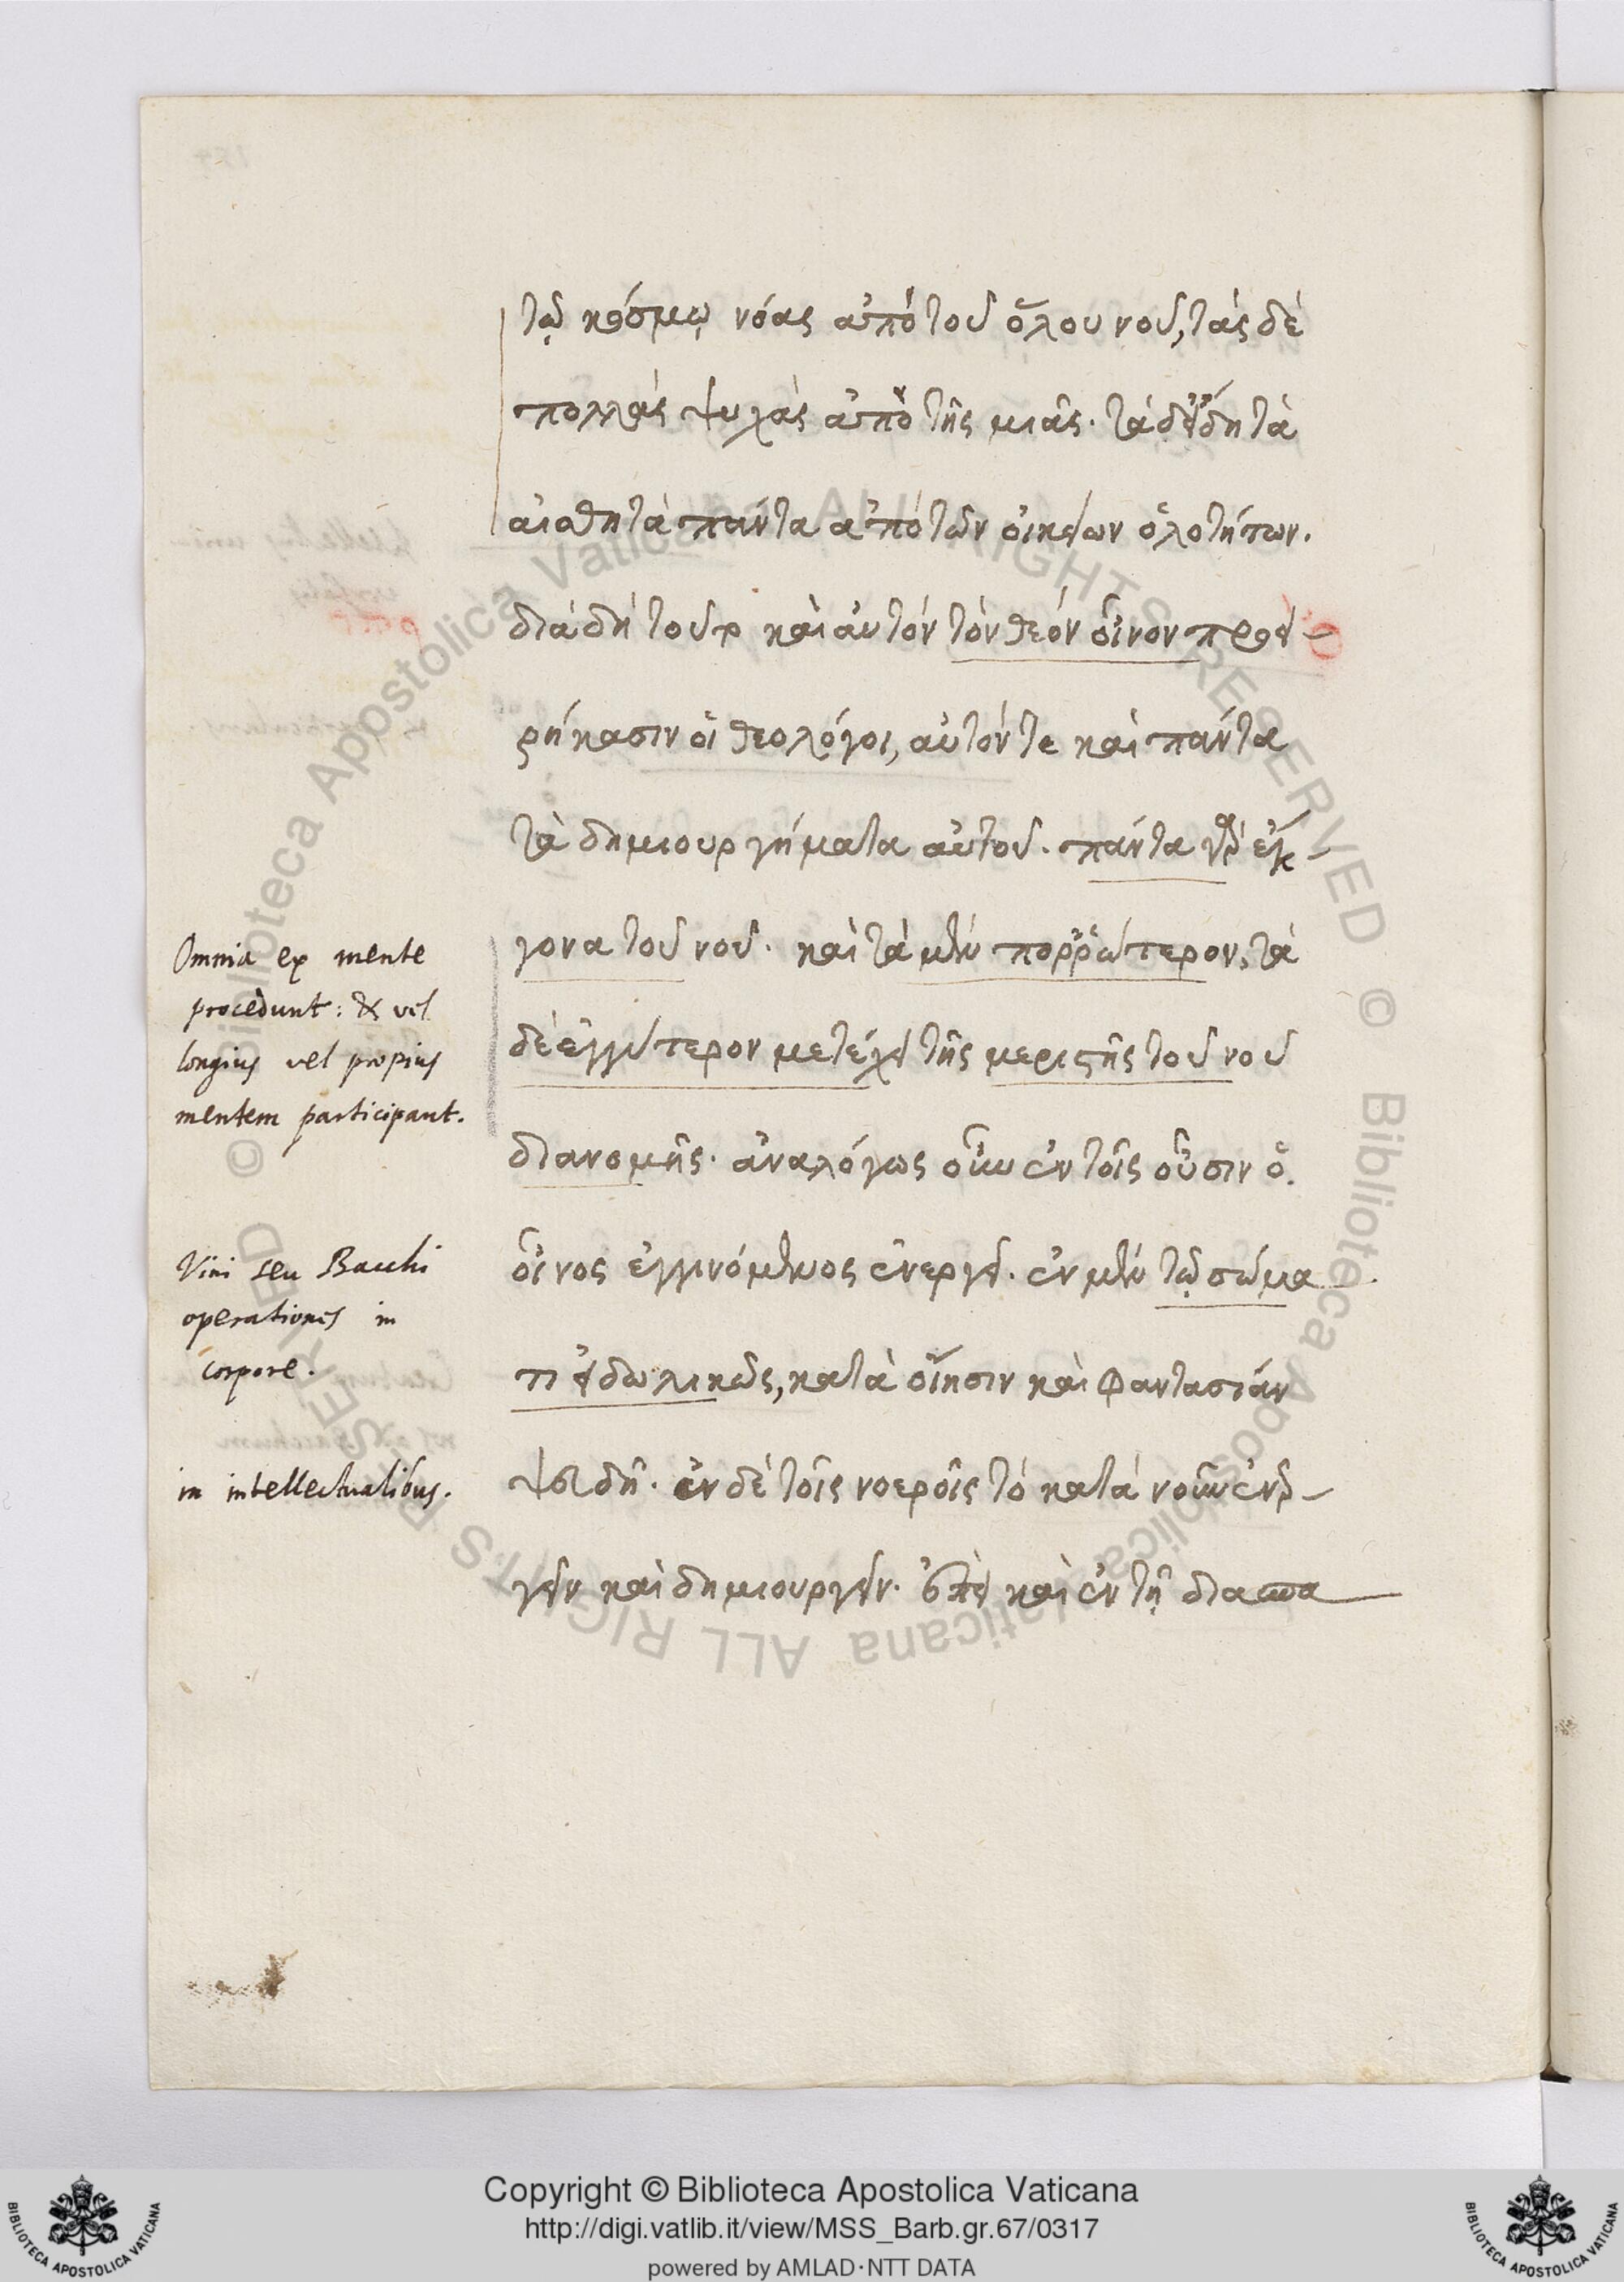 τῷ κόσμῳ νόας ἀπὸ τοῦ ὅλου νοῦ, τὰς δὲ
πολλὰς ψυχὰς ἀπὸ τῆς μιᾶς. τὰ δ' εἴδη τὰ
αἰσθητὰ πάντα ἀπὸ τῶν οἰκείων ὁλοτήτων.
διὰ δὴ τοῦτο καὶ αὐτὸν τὸν θεὸν οἶνον προσει-
ρήκασιν οἱ θεολόγοι, αὐτόν τε καὶ πάντα
τὰ δημιουργήματα αὐτοῦ. πάντα γὰρ ἔκ-
γονα τοῦ νοῦ. καὶ τὰ μὲν πορρώτερον, τὰ
δὲ ἐγγύτερον μετέχει τῆς μεριστῆς τοῦ νοῦ
διανομῆς. ἀναλόγως οὖν ἐν τοῖς οὖσιν ὁ
οἶνος ἐγγινόμενος ἐνεργεῖ. ἐν μὲν τῷ σώμα
τι εἰδωλικῶς, κατὰ οἴησιν καὶ φαντασίαν
ψευδῆ. ἐν δὲ τοῖς νοεροῖς τὸ κατὰ νοῦν ἐνερ-
γεῖν καὶ δημιουργεῖν. ἐπεὶ καὶ ἐν τῇ διασπα
Omnia ex mente
procedunt: & vel
longius vel propius
mentem participant.
Vini seu Bacchi
operationes in
corpore.
in intellectualibus.
Copyright © Biblioteca Apostolica Vaticana
http://digi.vatlib.it/view/MSS_Barb.gr.67/0317
powered by AMLAD·NTT DATA
BIBLIOTECA APOSTOLICA VATICANA
BIBLIOTECA APOSTOLICA VATICANA
© Biblioteca Apostolica Vaticana ALL RIGHTS RESERVED © Biblioteca Apostolica Vaticana ALL RIGHTS RESERVED